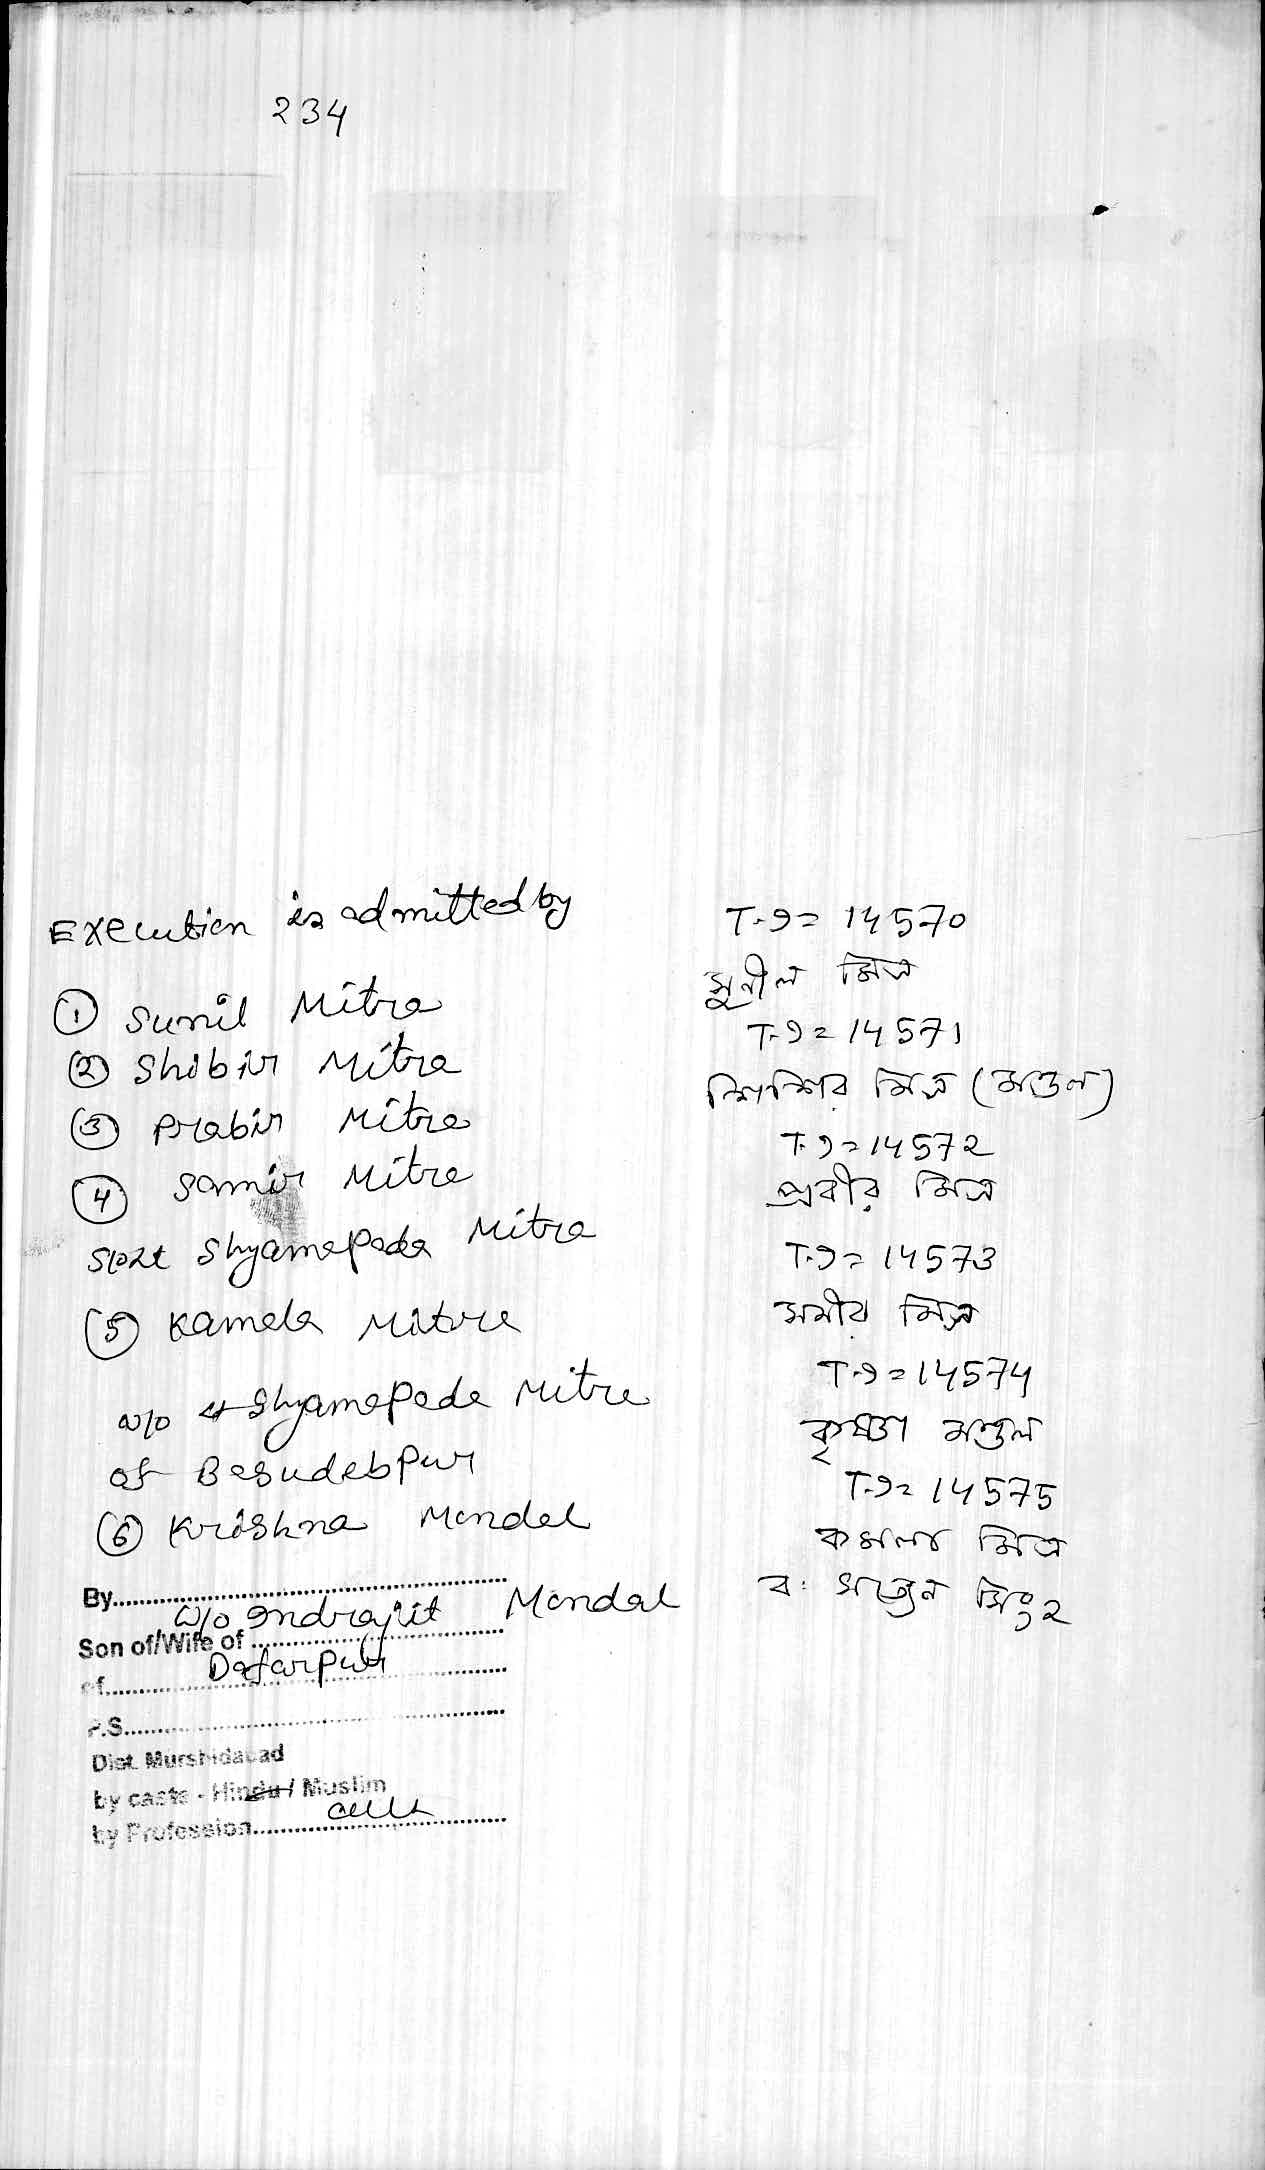 234
Execution is admitted by
① Sunil Mitra
② Shibir Mitra
③ Prabir Mitra
④ Samir Mitra
Shyamapada Mitra
⑤ Kamala Mitra
W/o Shyamapada Mitra
of Basudebpur
⑥ Krishna Mandal
By
W/o Indrajit Mandal
Son of/Wife of
Dafarpur
of
P.S.
Dist. Murshidabad
by caste - Hindu / Muslim
by Profession
T.9= 14570
সুনীল মিত্র
T.9= 14571
শিশির মিত্র (মণ্ডল)
T.9= 14572
প্রবীর মিত্র
T.9= 14573
সমীর মিত্র
T.9= 14574
কৃষ্ণা মণ্ডল
T.9= 14575
কমলা মিত্র
ব: সত্যেন সিংহ